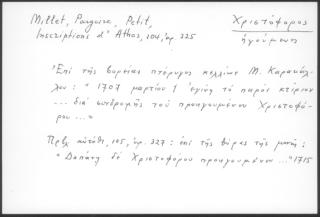 Millet, Pargoire, Petit,
Inscriptions d'Athos, 104, ἀρ. 325
Χριστόφορος
ἡγούμενος
Ἐπὶ τῆς βορείας πτέρυγος κελλίων Μ. Καρακάλ-
λου: "1707 μαρτίου 1 ἐγίνη τὸ παρὸν κτίριον
... διὰ συνδρομῆς τοῦ προηγουμένου Χριστοφό-
ρου ..."
Πρβλ. αὐτόθι, 105, ἀρ. 327: ἐπὶ τῆς θύρας τῆς μονῆς:
"Δαπάνῃ δὲ Χριστοφόρου προηγουμένου ..." 1715